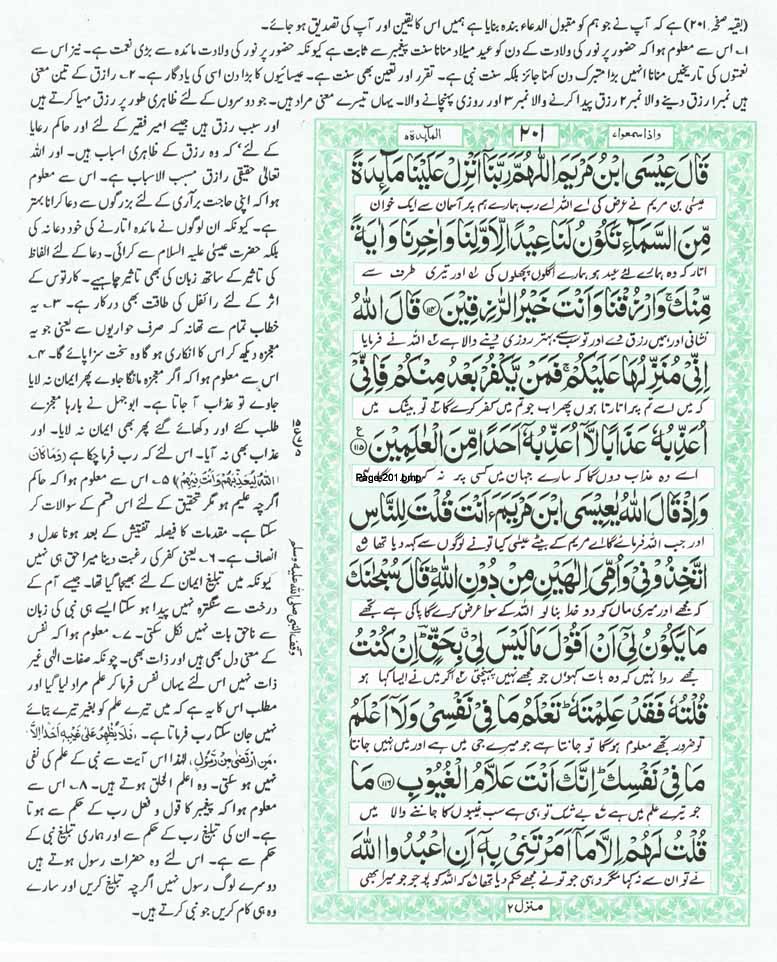 (بقیہ صفحہ ۲۰۱) ہے کہ آپ نے جو ہم کو مقبول الدعاء بندہ بنایا ہے ہمیں اس کا یقین اور آپ کی تصدیق ہو جائے۔
۱۔ اس سے معلوم ہوا کہ حضور پر نور کی ولادت کے دن کو عید میلاد منانا سنت پیغمبر سے ثابت ہے کیونکہ حضور پر نور کی ولادت مائدہ سے بڑی نعمت ہے۔ نیز اس سے
نعمتوں کی تاریخیں منانا انہیں بڑا متبرک دن کہنا جائز بلکہ سنت نبی ہے۔ تقرر اور تعین بھی سنت ہے۔ عیسائیوں کا بڑا دن اسی کی یادگار ہے۔ ۲۔ رازق کے تین معنی
ہیں نمبر۱ رزق دینے والا نمبر۲ رزق پیدا کرنے والا نمبر۳ اور روزی پہنچانے والا۔ یہاں تیسرے معنی مراد ہیں۔ جو دوسروں کے لئے ظاہری طور پر رزق مہیا کرتے ہیں
واذا سمعوا۷
۲۰۱
المآىٕدة۵
قَالَ عِیْسَى ابْنُ مَرْیَمَ اللّٰهُمَّ رَبَّنَاۤ اَنْزِلْ عَلَیْنَا مَآىٕدَةً
عیسیٰ بن مریم نے عرض کی اے اللہ اے رب ہمارے ہم پر آسمان سے ایک خوان
مِّنَ السَّمَآءِ تَكُوْنُ لَنَا عِیْدًا لِّاَوَّلِنَا وَ اٰخِرِنَا وَ اٰیَةً
اتار کہ وہ ہمارے لئے عید ہو ہمارے اگلوں پچھلوں کی ؂ اور تیری طرف سے
مِّنْكَۚ وَ ارْزُقْنَا وَ اَنْتَ خَیْرُ الرّٰزِقِیْنَ ۝۱۱۴ قَالَ اللّٰهُ
نشانی اور ہمیں رزق دے اور تو سب سے بہتر روزی دینے والا ہے اللہ نے فرمایا
اِنِّیْ مُنَزِّلُهَا عَلَیْكُمْۚ فَمَنْ یَّكْفُرْ بَعْدُ مِنْكُمْ فَاِنِّیْۤ
کہ میں اسے تم پر اتارتا ہوں پھر اب جو تم میں کفر کرے گا تو بیشک میں
اُعَذِّبُهٗ عَذَابًا لَّاۤ اُعَذِّبُهٗۤ اَحَدًا مِّنَ الْعٰلَمِیْنَ ۝۱۱۵
اسے وہ عذاب دوں گا کہ سارے جہان میں کسی پر نہ کروں گا
Page 201.bmp
وَ اِذْ قَالَ اللّٰهُ یٰعِیْسَى ابْنَ مَرْیَمَ ءَاَنْتَ قُلْتَ لِلنَّاسِ
اور جب اللہ فرمائے گا اے مریم کے بیٹے عیسیٰ کیا تو نے لوگوں سے کہہ دیا تھا
اتَّخِذُوْنِیْ وَ اُمِّیَ اِلٰهَیْنِ مِنْ دُوْنِ اللّٰهِؕ قَالَ سُبْحٰنَكَ
کہ مجھے اور میری ماں کو دو خدا بنا لو اللہ کے سوا عرض کرے گا پاکی ہے تجھے
مَا یَكُوْنُ لِیْۤ اَنْ اَقُوْلَ مَا لَیْسَ لِیْۗ بِحَقٍّؕ اِنْ كُنْتُ
مجھے روا نہیں کہ وہ بات کہوں جو مجھے نہیں پہنچتی اگر میں نے ایسا کہا ہو
قُلْتُهٗ فَقَدْ عَلِمْتَهٗؕ تَعْلَمُ مَا فِیْ نَفْسِیْ وَ لَاۤ اَعْلَمُ
تو ضرور تجھے معلوم ہوگا تو جانتا ہے جو میرے جی میں ہے اور میں نہیں جانتا
مَا فِیْ نَفْسِكَؕ اِنَّكَ اَنْتَ عَلَّامُ الْغُیُوْبِ ۝۱۱۶ مَا
جو تیرے علم میں ہے بے شک تو ہی ہے سب غیبوں کا جاننے والا میں
قُلْتُ لَهُمْ اِلَّا مَاۤ اَمَرْتَنِیْ بِهٖۤ اَنِ اعْبُدُوا اللّٰهَ
نے تو ان سے نہ کہا مگر وہی جو تو نے مجھے حکم دیا تھا کہ اللہ کو پوجو جو میرا بھی
منزل۲
وقف النبی صلی اللہ علیہ وسلم
اور سبب رزق ہیں جیسے امیر فقیر کے لئے اور حاکم رعایا
کے لئے کہ وہ رزق کے ظاہری اسباب ہیں۔ اور اللہ
تعالٰی حقیقی رازق مسبب الاسباب ہے۔ اس سے معلوم
ہوا کہ اپنی حاجت برآری کے لئے بزرگوں سے دعا کرانا بہتر
ہے۔ کیونکہ ان لوگوں نے مائدہ اتارنے کی خود دعا نہ کی
بلکہ حضرت عیسیٰ علیہ السلام سے کرائی۔ دعا کے لئے الفاظ
کی تاثیر کے ساتھ زبان کی بھی تاثیر چاہیے۔ کارتوس کے
اثر کے لئے رائفل کی طاقت بھی درکار ہے۔ ۳۔ یہ
خطاب تمام سے تھا نہ کہ صرف حواریوں سے یعنی جو یہ
معجزہ دیکھ کر اس کا انکاری ہو گا وہ سخت سزا پائے گا۔ ۴۔
اس سے معلوم ہوا کہ اگر معجزہ مانگا جاوے پھر ایمان نہ لایا
جاوے تو عذاب آ جاتا ہے۔ ابوجہل نے بارہا معجزے
طلب کئے اور دکھائے گئے پھر بھی ایمان نہ لایا۔ اور
عذاب بھی نہ آیا۔ اس لئے کہ رب فرما چکا ہے (وَمَا كَانَ
اللّٰهُ لِیُعَذِّبَهُمْ وَاَنْتَ فِیْهِمْ) ۵۔ اس سے معلوم ہوا کہ حاکم
اگرچہ علیم ہو مگر تحقیق کے لئے اس قسم کے سوالات کر
سکتا ہے۔ مقدمات کا فیصلہ تفتیش کے بعد ہونا عدل و
انصاف ہے۔ ۶۔ یعنی کفر کی رغبت دینا میرا حق ہی نہیں
کیونکہ میں تبلیغ ایمان کے لئے بھیجا گیا تھا۔ جیسے آم کے
درخت سے سنگترہ نہیں پیدا ہو سکتا ایسے ہی نبی کی زبان
سے ناحق بات نہیں نکل سکتی۔ ۷۔ معلوم ہوا کہ نفس
کے معنی دل بھی ہیں اور ذات بھی۔ چونکہ صفات الٰہی غیر
ذات نہیں اس لئے یہاں نفس فرما کر علم مراد لیا گیا اور
مطلب اس کا یہ ہے کہ میں تیرے علم کو بغیر تیرے بتائے
نہیں جان سکتا رب فرماتا ہے۔ فَلَا یُظْهِرُ عَلٰى غَیْبِهٖۤ اَحَدًا اِلَّا
مَنِ ارْتَضٰى مِنْ رَّسُوْلٍ، لہٰذا اس آیت سے نبی کے علم کی نفی
نہیں ہو سکتی۔ وہ اعلم الخلق ہوتے ہیں۔ ۸۔ اس سے
معلوم ہوا کہ پیغمبر کا قول و فعل رب کے حکم سے ہوتا
ہے۔ ان کی تبلیغ رب کے حکم سے اور ہماری تبلیغ نبی کے
حکم سے ہے۔ اس لئے وہ حضرات رسول ہوتے ہیں
دوسرے لوگ رسول نہیں اگرچہ تبلیغ کریں اور سارے
وہ ہی کام کریں جو نبی کرتے ہیں۔